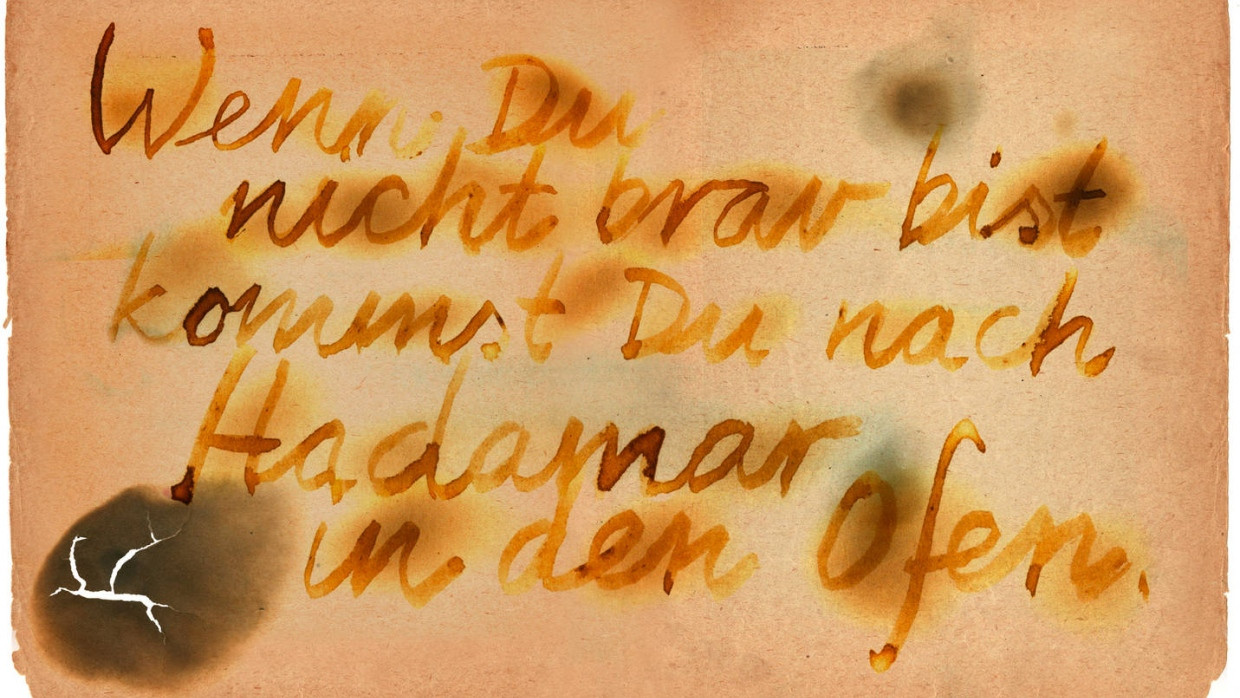 Wenn Du
nicht brav bist
kommst Du nach
Hadamar
in den Ofen.